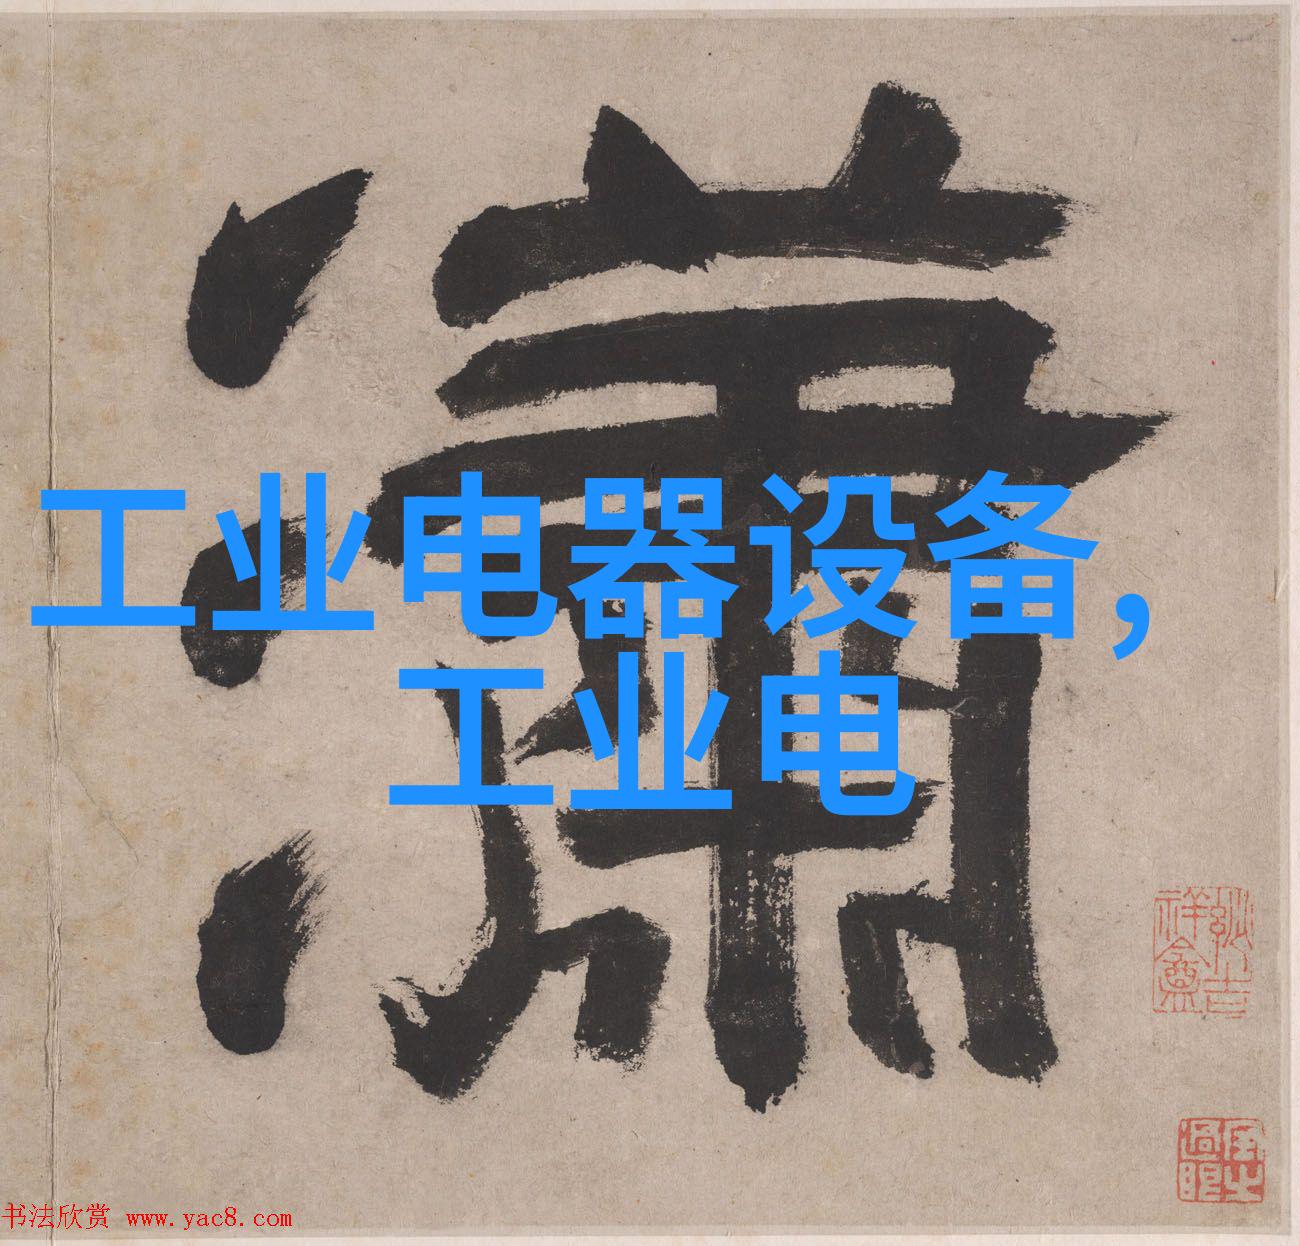 瀟
工业电器设备，
工业电
书法欣赏 www.yac8.com